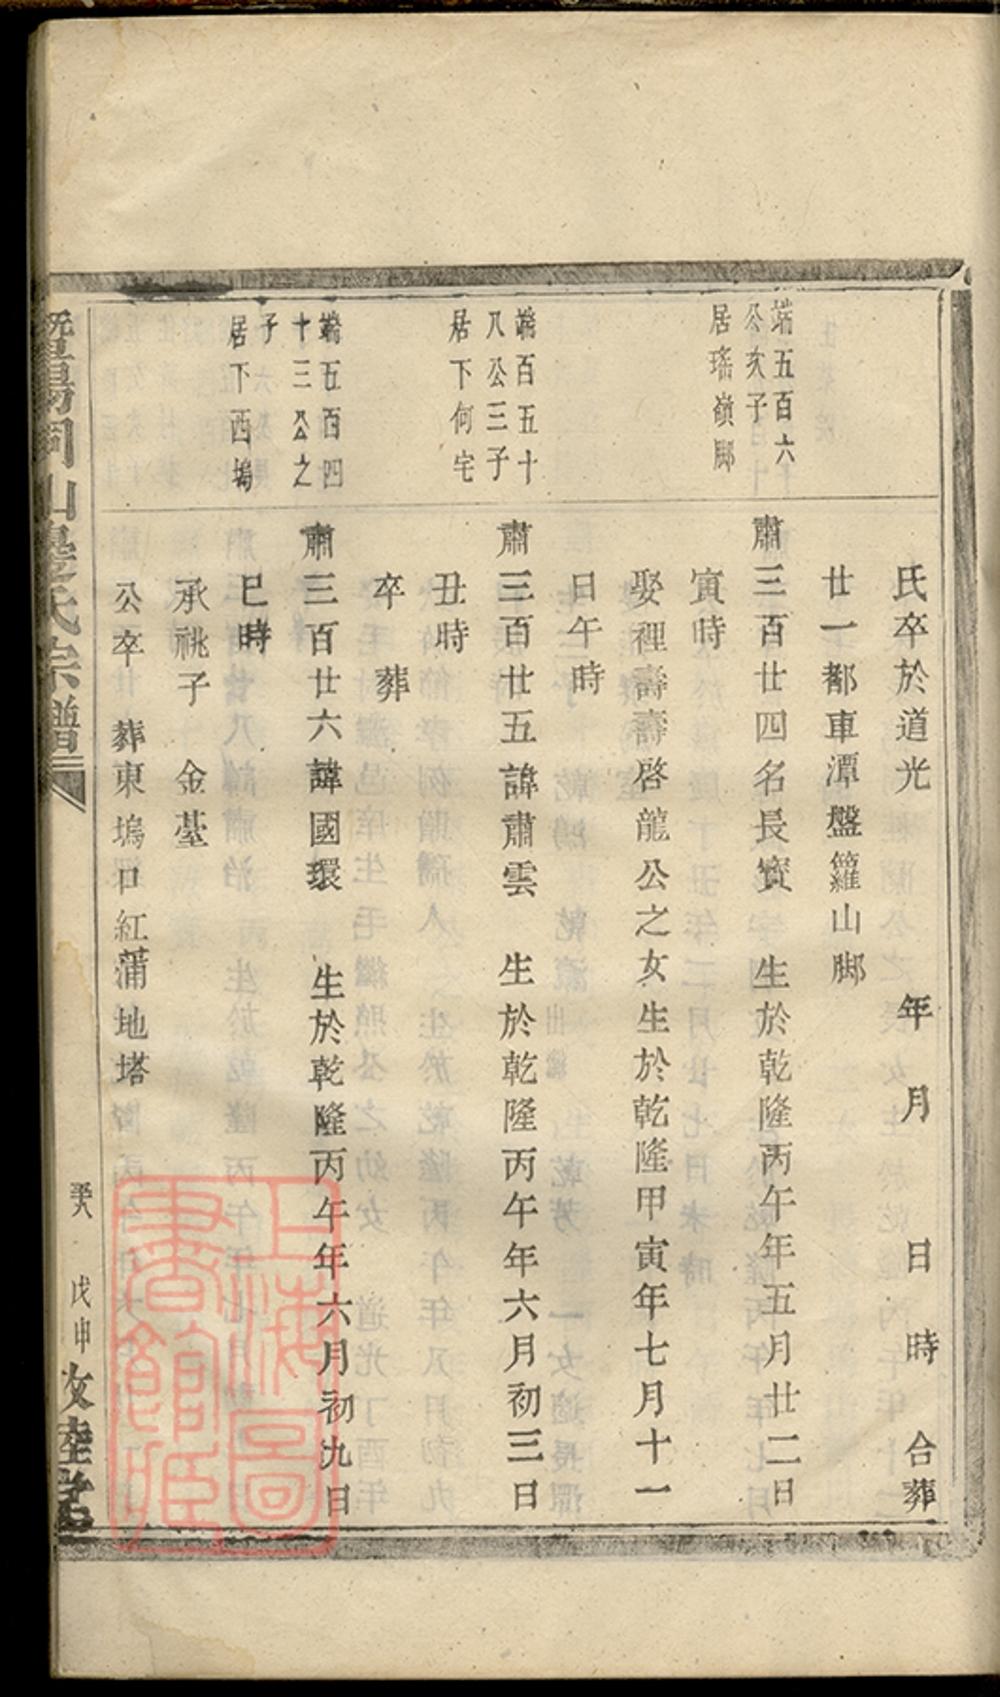 氏卒於道光 年 月 日 時 合葬
廿一都車潭盤籮山脚
端五百六
公次子
居瑤嶺脚
肅三百廿四名長寳 生於乾隆丙午年五月廿二日
寅時
娶裡壽壽啓龍公之女生於乾隆甲寅年七月十一
日午時
端百五十
八公三子
居下何宅
肅三百廿五諱肅雲 生於乾隆丙午年六月初三日
丑時
卒 葬
端五百四
十三公之
子
居下西塢
肅三百廿六諱國環 生於乾隆丙午年六月初九日
巳時
承祧子 金臺
公卒 葬東塢口紅蒲地塔
暨陽同山邊氏宗譜
戊申
上海圖書館藏